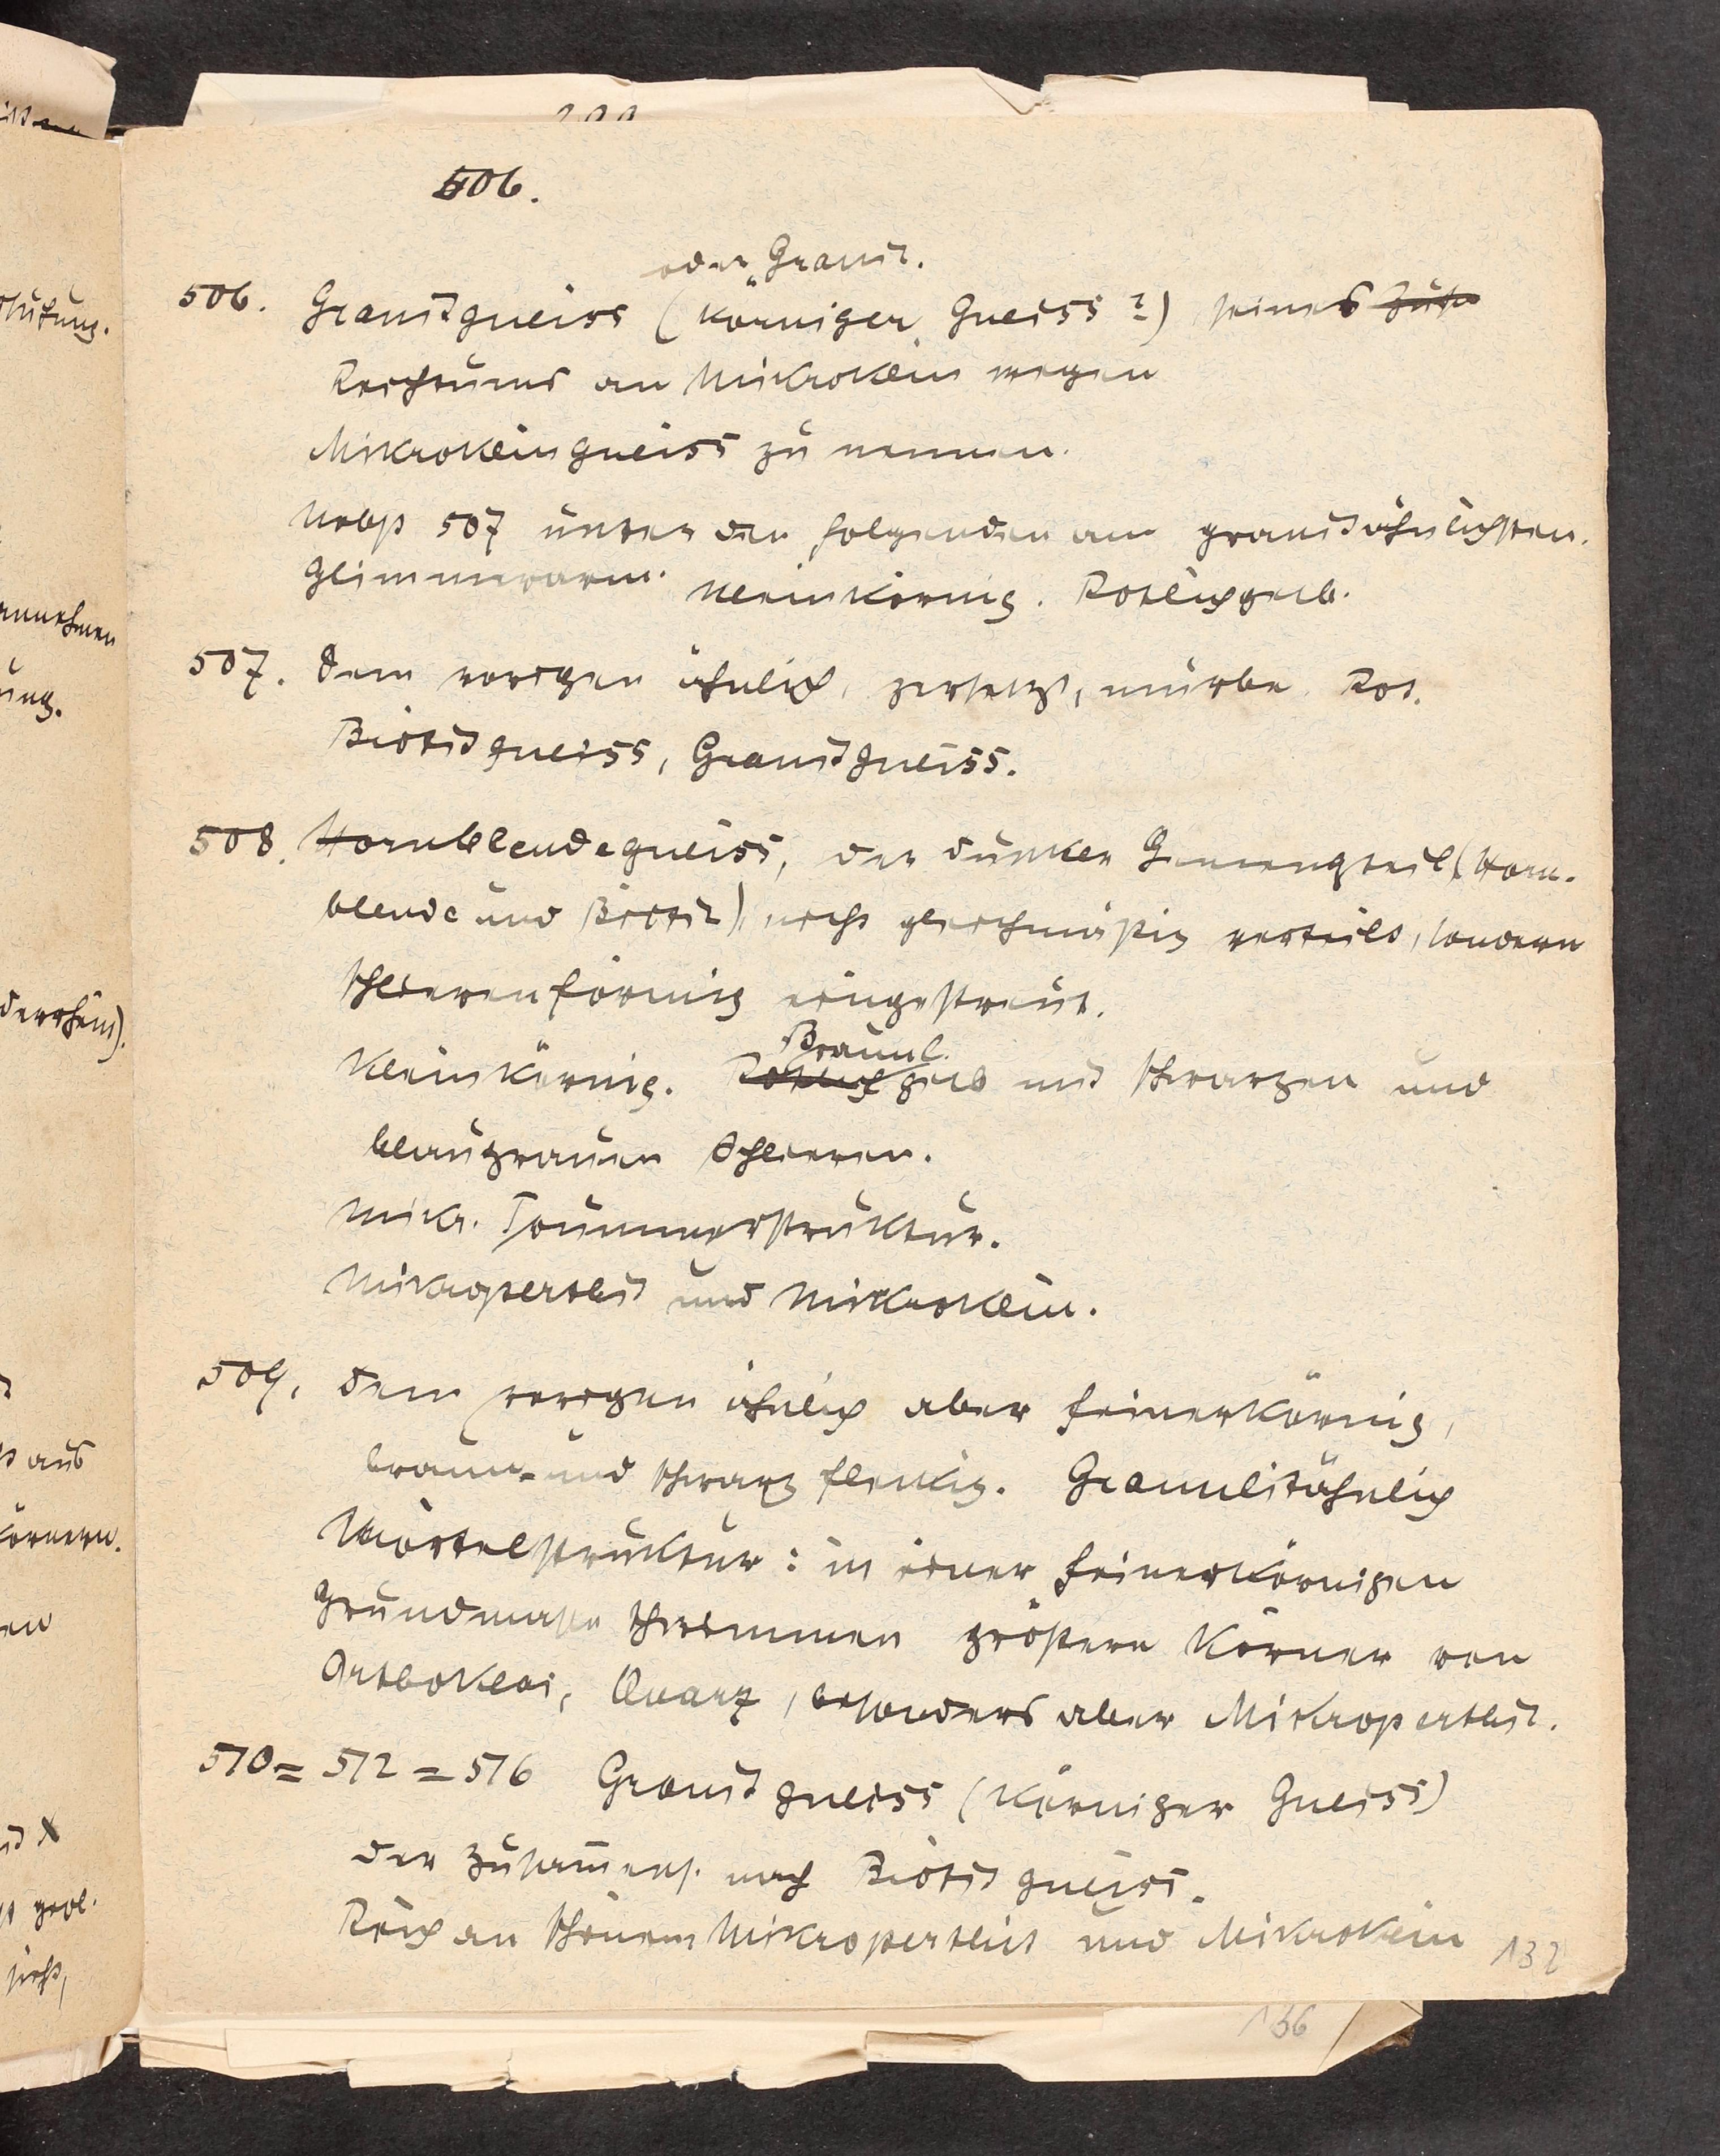 506.
oder Granit.
506. Granitgneiss (körniger Gneiss?) seines
Reichtums an Mikroklin wegen
Mikroklingneiss zu nennen.
Nebst 507 unter den folgenden am granitähnlichsten.
Glimmerarm. Kleinkörnig. Rötlichgelb.
507. Dem vorigen ähnlich, zersetzt, mürbe. Rot.
Biotitgneiss, Granitgneiss.
508. Hornblendegneiss, der dunkle Gemengteil (Horn-
blende und Biotit) nicht gleichmäßig verteilt, sondern
schlierenförmig eingestreut.
Bräunl.
Kleinkörnig. Rötlich gelb mit schwarzen und
blaugrauen Schlieren.
Mikr. Trümmerstruktur.
Mikroperthit und Mikroklin.
509. Dem vorigen ähnlich aber feinerkörnig,
braun- und schwarz fleckig. Granulitähnlich
Mörtelstruktur: in einer feinerkörnigen
Grundmasse schwimmen größere Körner von
Orthoklas, Quarz, besonders aber Mikroperthit.
510 = 512 = 516 Granitgneiss (körniger Gneiss)
der Zusammens. nach Biotitgneiss.
Reich an schönem Mikroperthit und Mikroklin
132
136